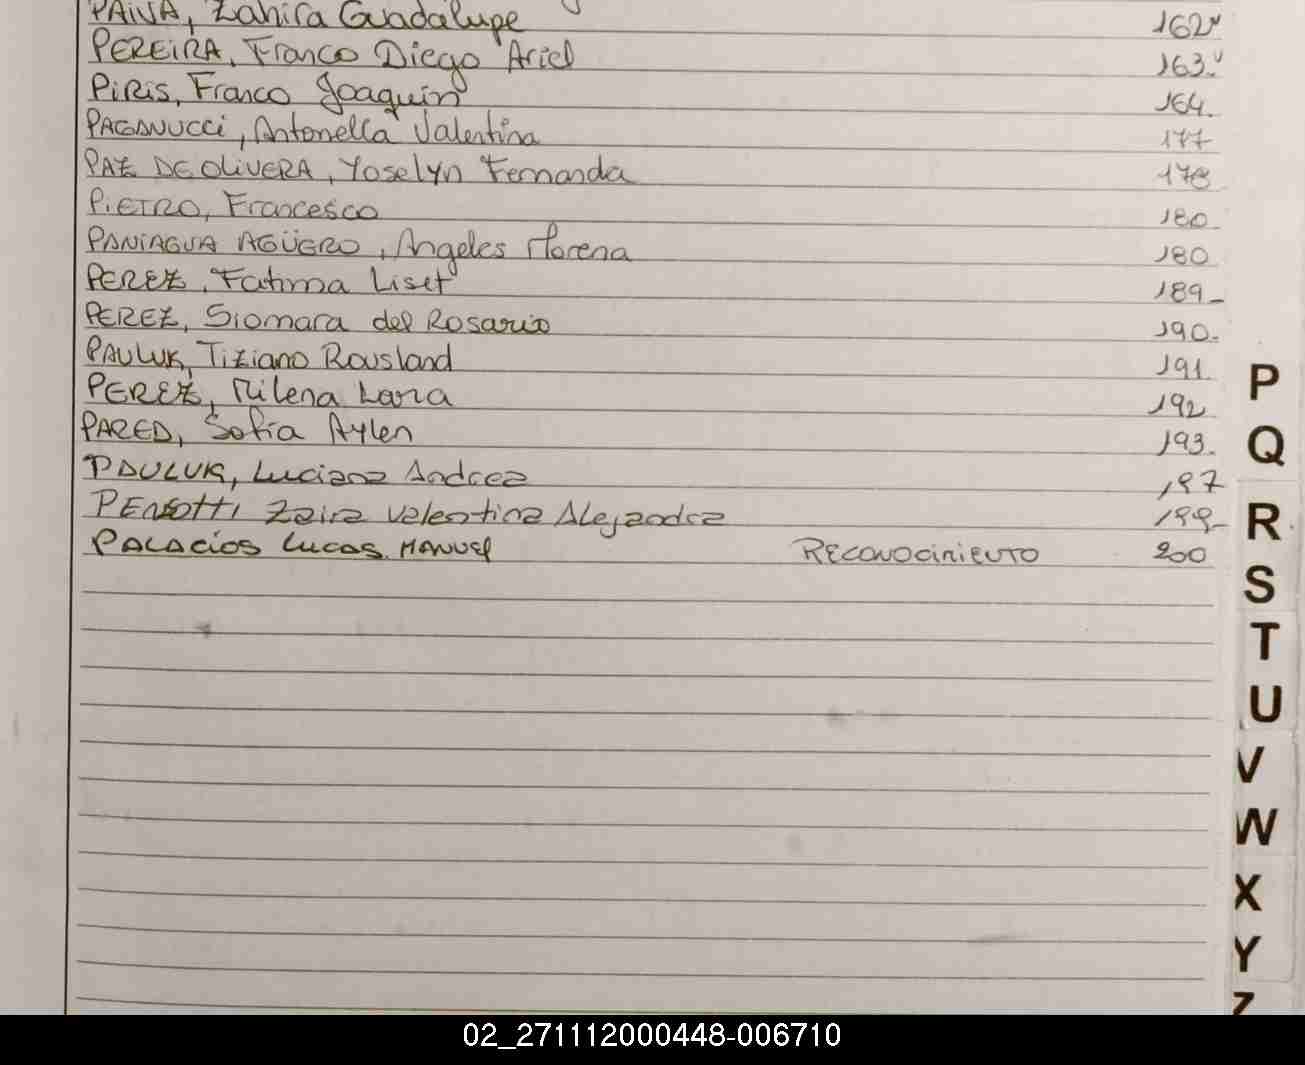 PAIVA, Zahira Guadalupe 162v
PEREIRA, Franco Diego Ariel 163.v
PIRIS, Franco Joaquín 164.
PAGANUCCI, Antonella Valentina 177
PAZ DE OLIVERA, Yoselyn Fernanda 178
PIETRO, Francesco 180.
PANIAGUA AGÜERO, Angeles Morena 180
PEREZ, Fatima Liset 189-
PEREZ, Siomara del Rosario 190.
PAULUK, Tiziano Rousland 191
PEREZ, Milena Lara 192
PARED, Sofia Aylen 193.
PAULUK, Luciana Andrea 197
PENSOTTI Zaira Valentina Alejandra 199-
PALACIOS LUCAS MANUEL RECONOCIMIENTO 200
P
Q
R
S
T
U
V
W
X
Y
Z
02_271112000448-006710